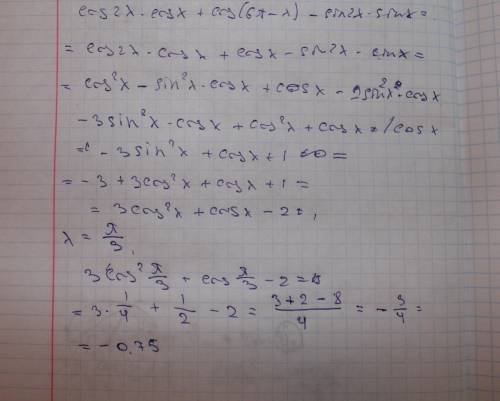 cos2x · cosx + cos(6π - x) - sin2x · sinx =
= cos2x · cosx + cosx - sin2x · sinx =
= cos²x - sin²x · cosx + cosx - 2sin²x · cosx
-3sin²x · cosx + cos²x + cosx = / cosx
= -3sin²x + cosx + 1 =
= -3 + 3cos²x + cosx + 1 =
= 3cos²x + cosx - 2 = ,
x = π/3,
3cos² π/3 + cos π/3 - 2 =
= 3 · 1/4 + 1/2 - 2 = (3 + 2 - 8)/4 = - 3/4 =
= -0,75